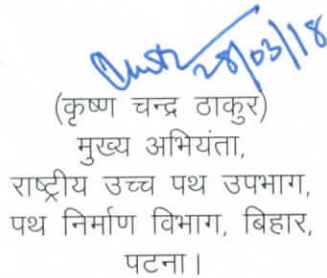 28/03/18
(कृष्ण चन्द्र ठाकुर)
मुख्य अभियंता,
राष्ट्रीय उच्च पथ उपभाग,
पथ निर्माण विभाग, बिहार,
पटना।